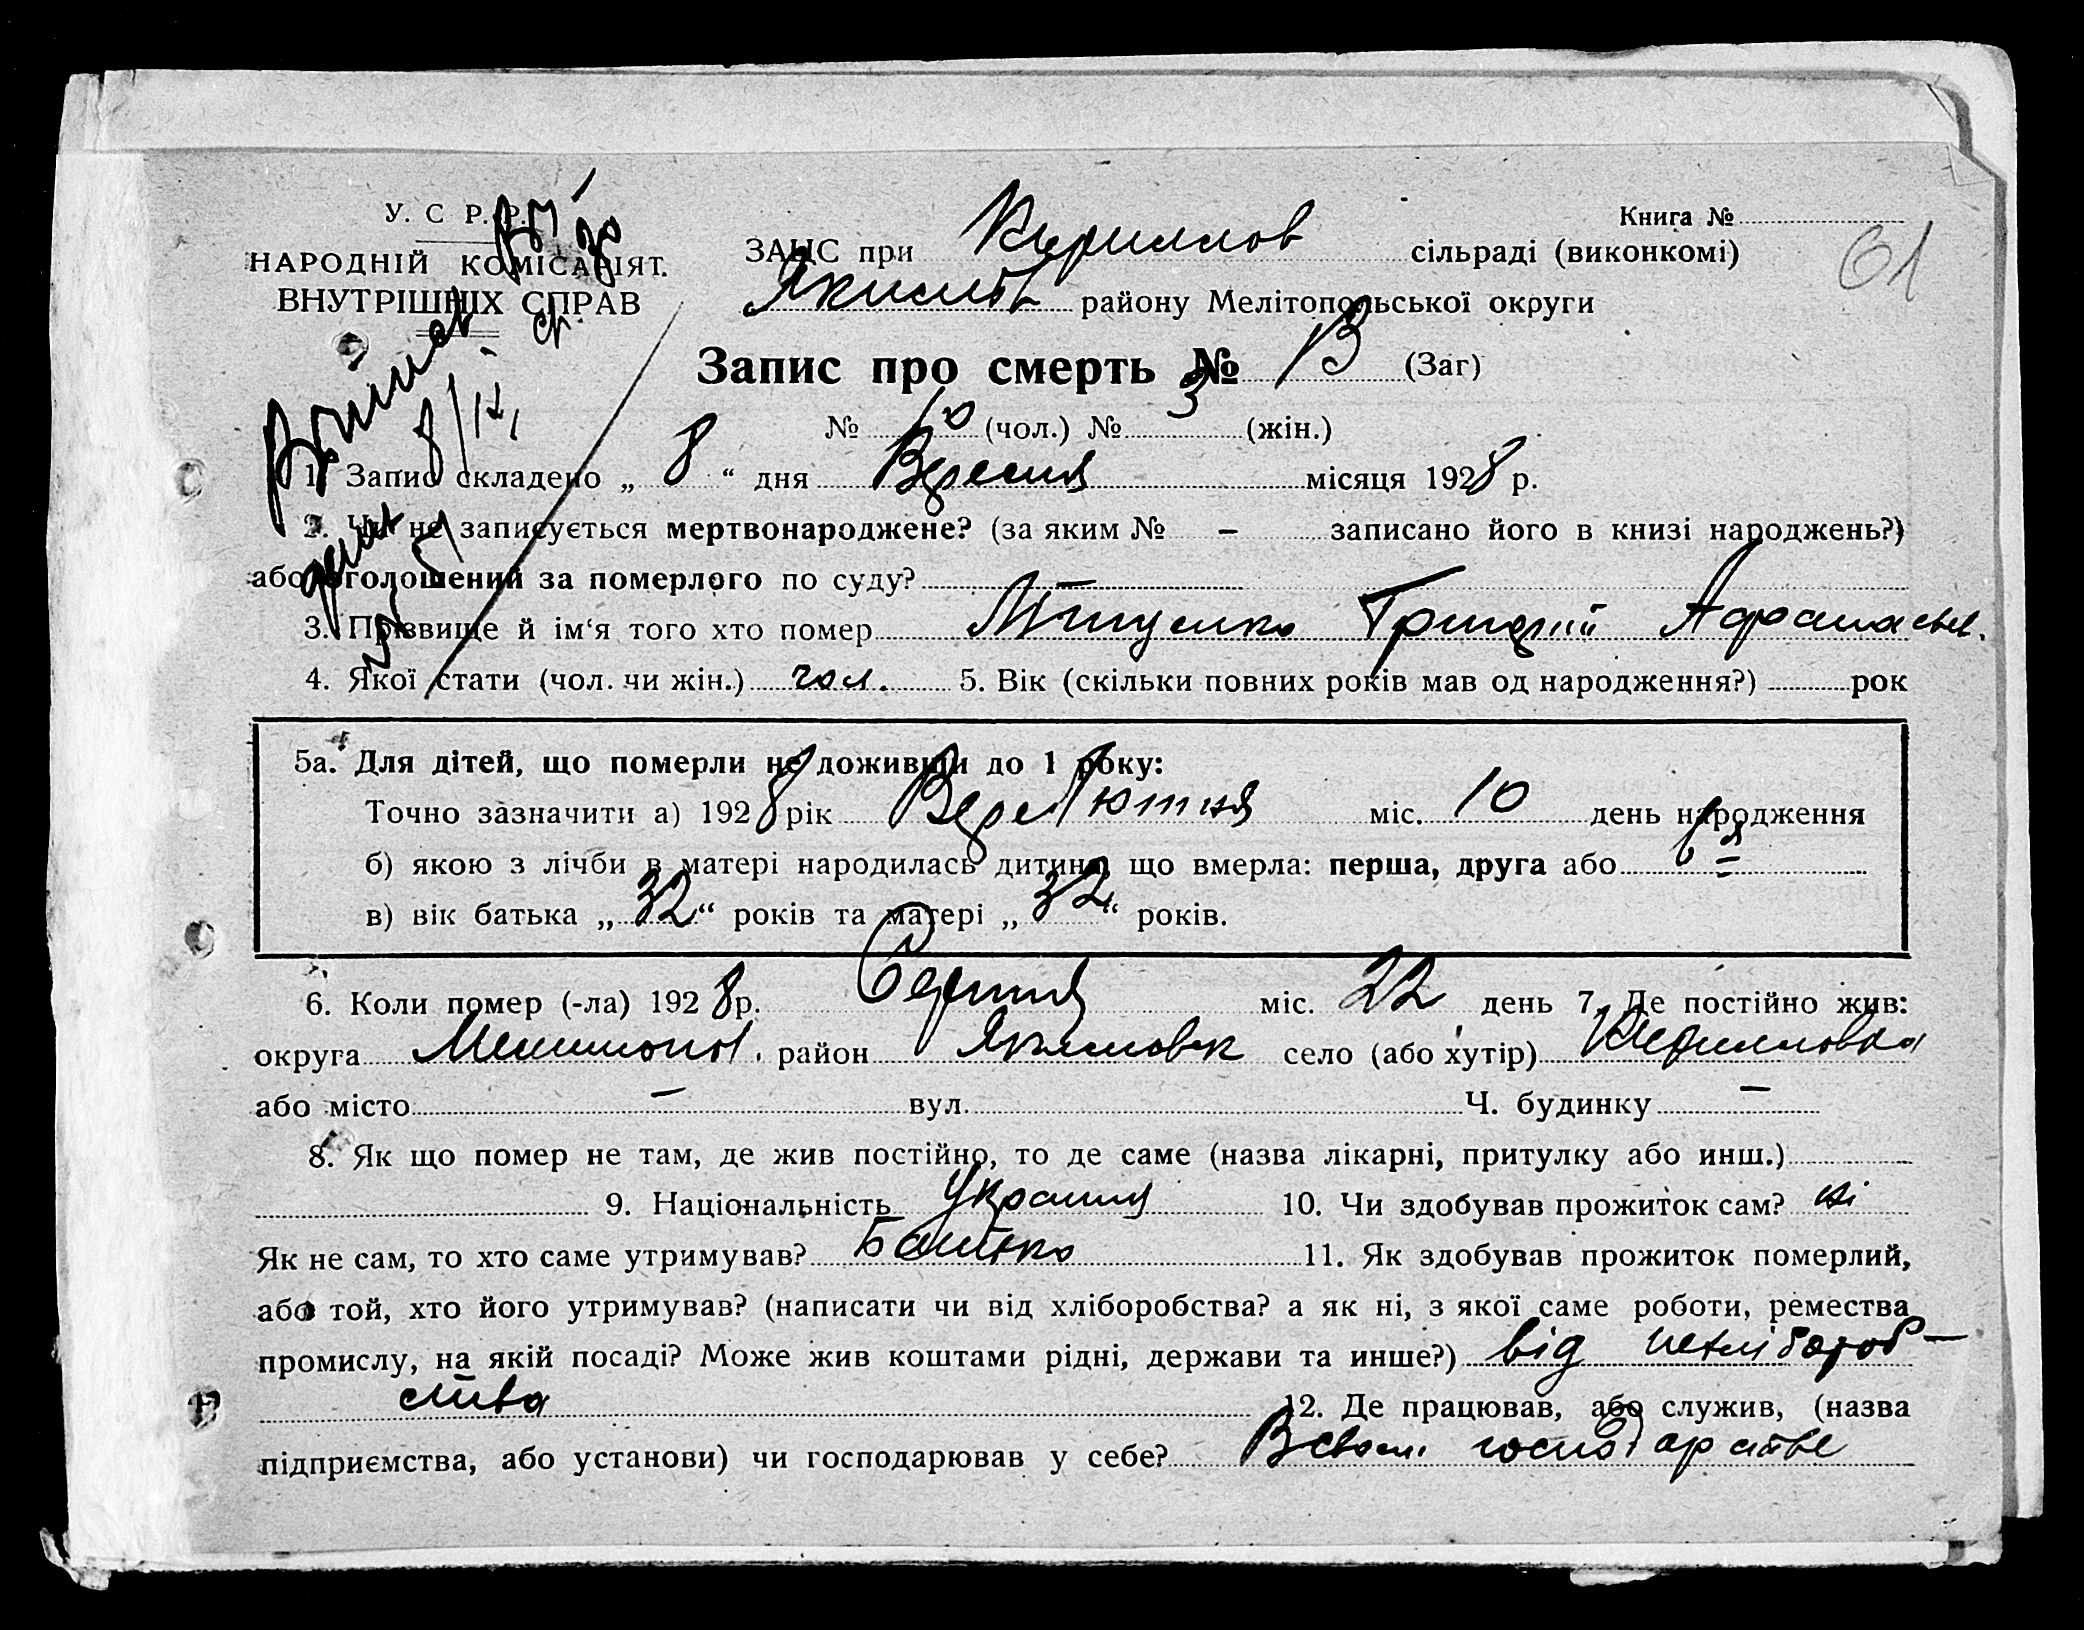 У. С. Р. Р.
НАРОДНІЙ КОМІСАРІЯТ.
ВНУТРІШНІХ СПРАВ
Книга №
61
ЗАЦС при Кирилов сільраді (виконкомі)
Якимов района Мелітопольської округи
Запис про смерть № 13 (Заг)
№ 10 (чол.) № 3 (жін.)
1. Запис складено „ 8 “ дня Вересня місяця 1928 р.
2. Чи не записується мертвонароджене? (за яким № – записано його в книзі народжень?)
або оголошений за померлого по суду? –
3. Прізвище й ім‘я того хто помер Григорій Афанасьев.
4. Якої стати (чол. чи жін.) чол. 5. Вік (скільки повних років мав од народження?) рок
5а. Для дітей, що померли не доживши до 1 року:
Точно зазначити а) 1928 рік Лютня міс. 10 день народження
б) якою з лічби в матері народилась дитина, що вмерла: перша, друга або 6я
в) вік батька „ 32 “ років та матері „ 32 “ років.
6. Коли помер (-ла) 1928 р. Серпня міс. 22 день 7. Де постійно жив:
округа Мелитопол. район Якимовск село (або хутір) Кирилловка
або місто – вул. Ч. будинку –
8. Як що помер не там, де жив постійно, то де саме (назва лікарні, притулку або инш.)
9. Національність Україн 10. Чи здобував прожиток сам? ні
Як не сам, то хто саме утримував? Батько 11. Як здобував прожиток померлий,
або той, хто його утримував? (написати чи від хліборобства? а як ні, з якої саме роботи, ремества
промислу, на якій посаді? Може жив коштами рідні, держави та инше?) від хлібороб-
ства 12. Де працював, або служив, (назва
підприємства, або установи) чи господарював у себе? В своем господарстве